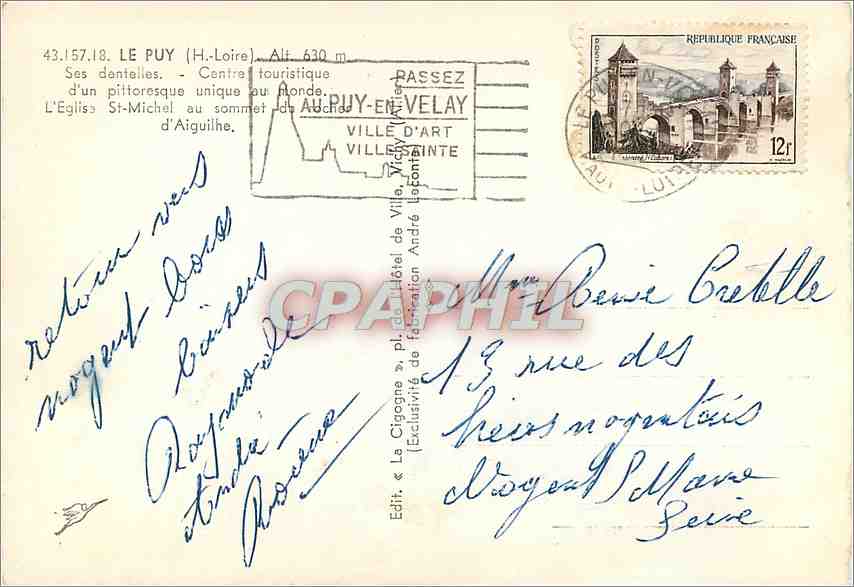 43.157.18. LE PUY (H.-Loire) Alt. 630 m
Ses dentelles. - Centre touristique
d'un pittoresque unique au monde.
L'Eglise St-Michel au sommet du rocher
d'Aiguilhe.
PASSEZ
AU PUY-EN-VELAY
VILLE D'ART
VILLE SAINTE
REPUBLIQUE FRANÇAISE
POSTES
12f
retour vers
nogent bons
baisers
Raymonde
André
Edit. « La Cigogne », pl. de l'Hôtel de Ville, Vichy (Allier)
(Exclusivité de fabrication André Leconte)
CPAPHIL
Mme
13 rue des
heros nogentais
Nogent S Marne
Seine